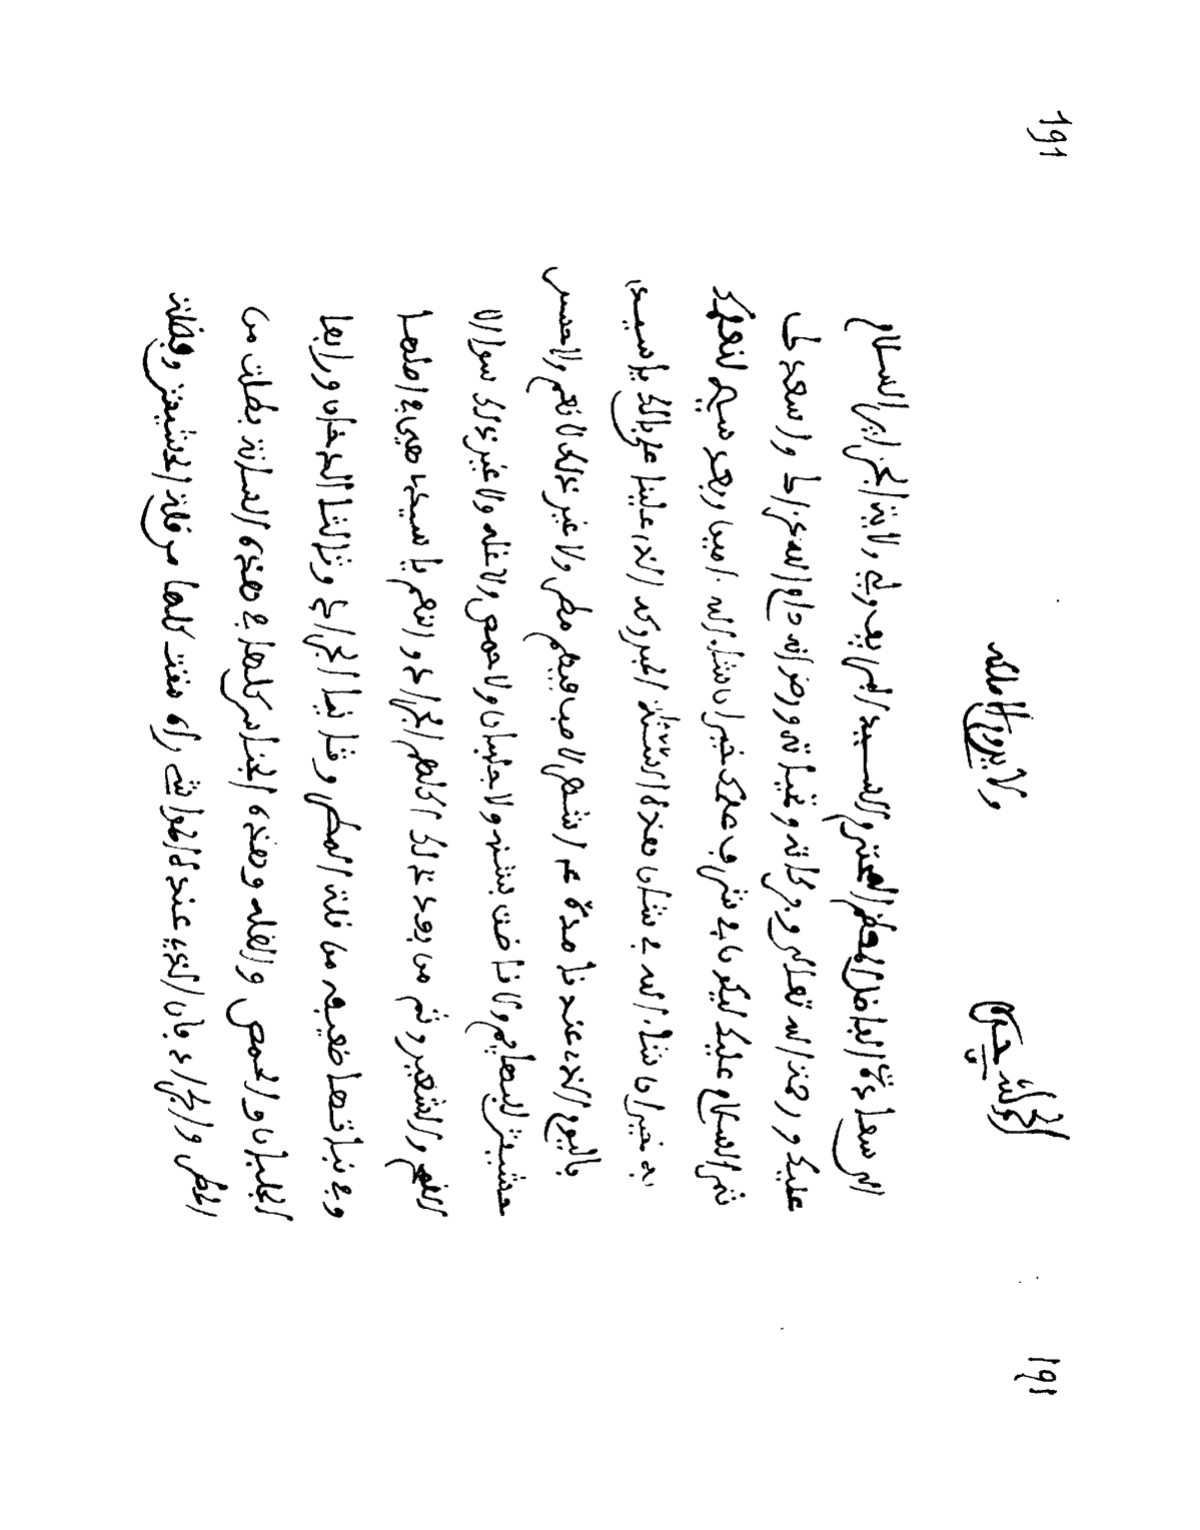 191
الحمد لله وحده
ولا يدوم الا ملكه
الى سعادة الفاضل المعظم المحترم السيد ابريفي والي ولاية الجزاير السلام
عليك ورحمة الله تعالى وبركاته وتحياته ورضوانه دام الله عزك واسعدك
ثم السلام عليك ليكون في شريف علمك خير ان شاء الله امين وبعد سيدي نعلمك
به خير ان شاء الله في شان هذه المسئلة المبروكة الذي علينا على بالك يا سيدي
باليوم الذي عندنا مدة اشهر لا صب فيهم مطر ولا غير ذلك لا نعم ولا حسن
حشيش لبهايم ولا ناضت بشنه ولا جلبان ولا حمص ولا فله ولا غير ذلك سوى الا
القمح والشعير وثم من بعد ذلك اكلهم الجراد وانعم يا سيدنا هي اصلها
ونباتها ضعيفة من قلة المطر وثانيا الجراد وثالثا الدخان ورابعا
الجلبان والحمص والفله وهذه الجناس كلها في هذه السانة بطلت من
المطر والجراد بان الذي عنده الهوايش راه مفت كلها من قلة الحشيش وقلة
191